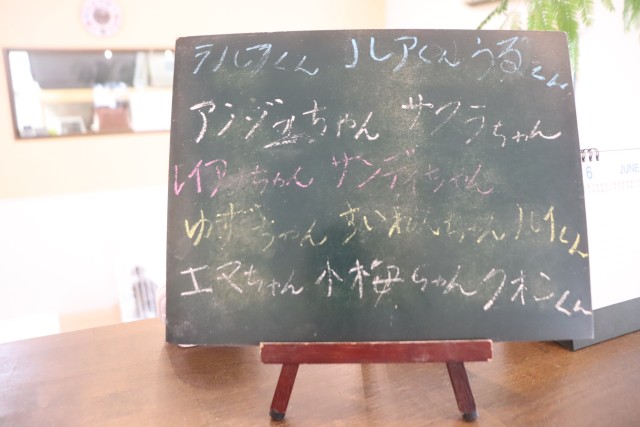 ラルフくん ルアくん うるくん
アンジュちゃん サクラちゃん
レイアちゃん サンディちゃん
ゆずちゃん ちゃん ルイくん
エマちゃん 小梅ちゃん クオンくん
6 JUNE